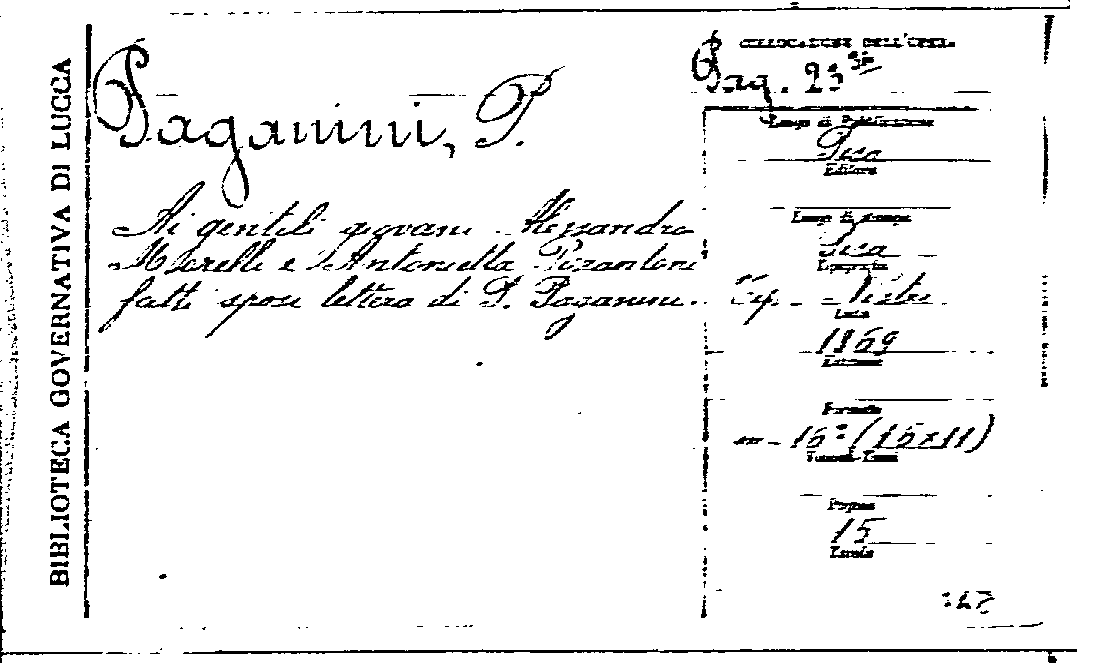 BIBLIOTECA GOVERNATIVA DI LUCCA
Paganini, P.
Ai gentili giovani Alessandro
Morelli e Antonietta
fatti sposi lettera di P. Paganini.
COLLOCAZIONE DELL'OPERA
Pag. 23
Luogo di Pubblicazione
Pisa
Editore
Luogo di stampa
Pisa
Tipografia
Tip. Nistri
Data
1869
Edizione
Formato
in-16º (15x11)
Pagine
15
Tavole